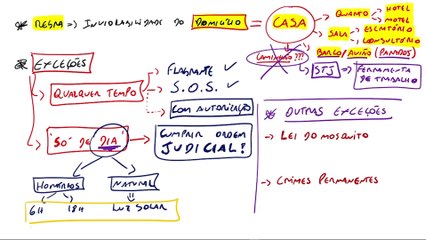 * REGRA => INVIOLABILIDADE DO DOMICÍLIO = CASA
→ QUARTO → HOTEL
→ MOTEL
→ SALA → ESCRITÓRIO
→ CONSULTÓRIO
→ BARCO/AVIÃO (PARADOS)
CAMINHÃO???
→ STJ → FERRAMENTA DE TRABALHO
* EXCEÇÕES
→ QUALQUER TEMPO
→ FLAGRANTE ✓
→ S.O.S. ✓
→ COM AUTORIZAÇÃO
→ "SÓ" DE DIA → CUMPRIR ORDEM
JUDICIAL?
HORÁRIOS
NATURAL
6H 18H LUZ SOLAR
* OUTRAS EXCEÇÕES
→ LEI DO MOSQUITO
→ CRIMES PERMANENTES